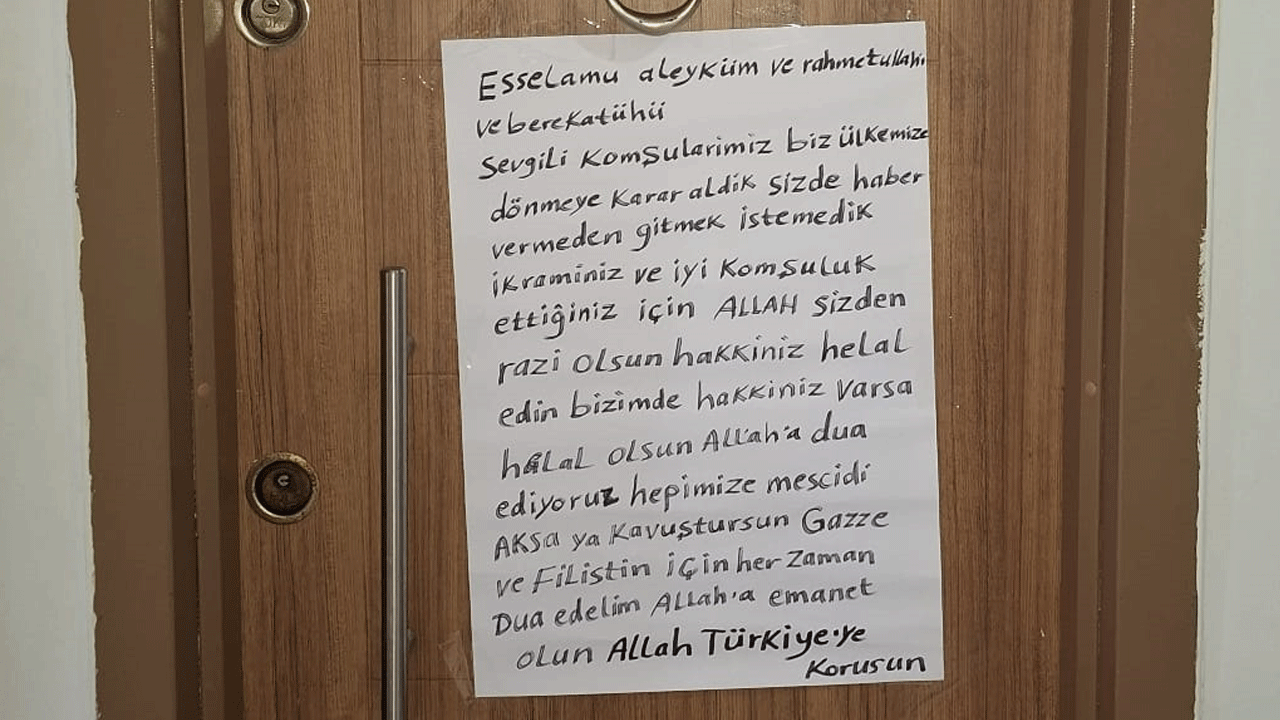 Esselamu aleyküm ve rahmetullahi
ve berekatühü
Sevgili Komşularimiz biz ülkemize
dönmeye Karar aldik sizde haber
vermeden gitmek istemedik
ikraminiz ve iyi Komşuluk
ettiğiniz için ALLAH sizden
razi olsun hakkiniz helal
edin bizimde hakkiniz varsa
hâlal olsun Allah'a dua
ediyoruz hepimize mescidi
AKsa ya Kavuştursun Gazze
ve Filistin için her zaman
Dua edelim Allah'a emanet
olun Allah Türkiye'ye
Korusun